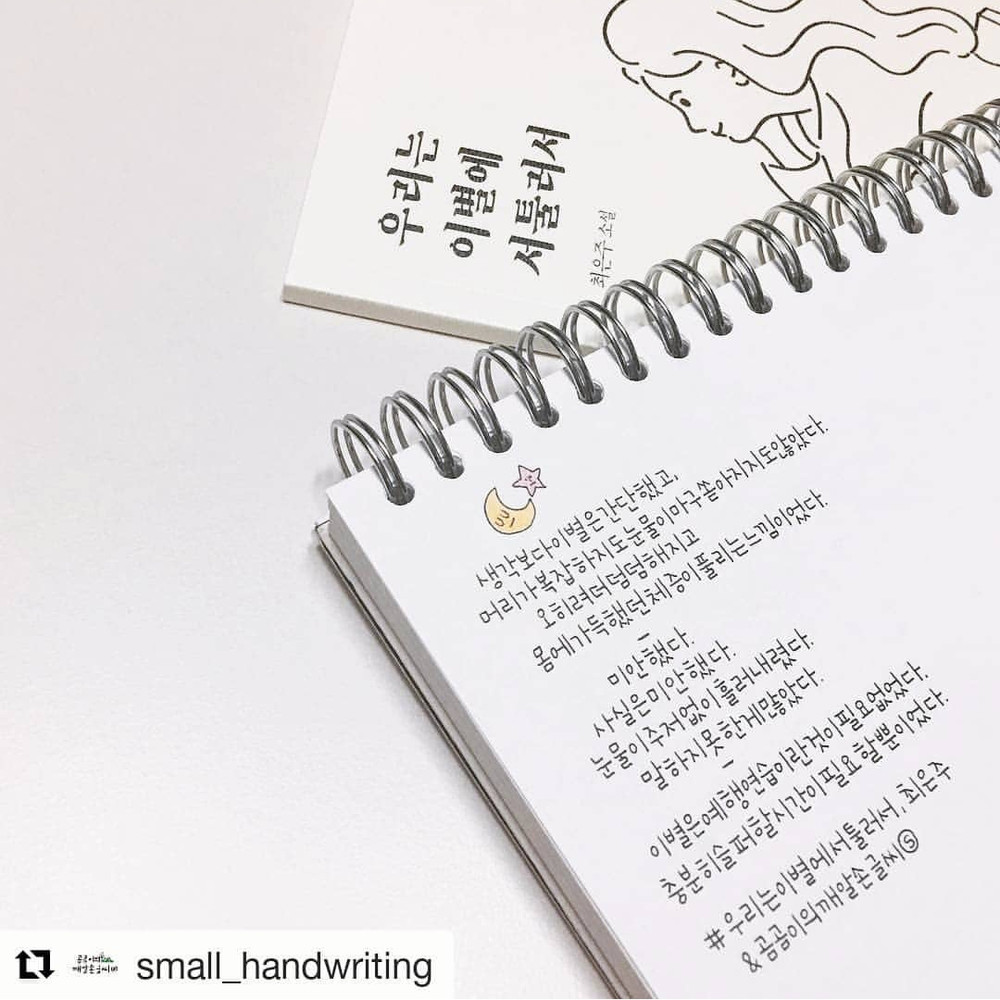 우리는
이별에
서툴러서
최은주 소설
생각보다이별은간단했고,
머리가복잡하지도눈물이마구쏟아지지도않았다.
오히려더덤덤해지고
몸에가득했던체증이풀리는느낌이었다.
-
미안했다.
사실은미안했다.
눈물이주저없이흘러내렸다.
말하지못한게많았다.
-
이별은예행연습이란것이필요없었다.
충분히슬퍼할시간이필요할뿐이었다.
#우리는이별에서툴러서, 최은주
&곰곰이의깨알손글씨ⓢ
small_handwriting